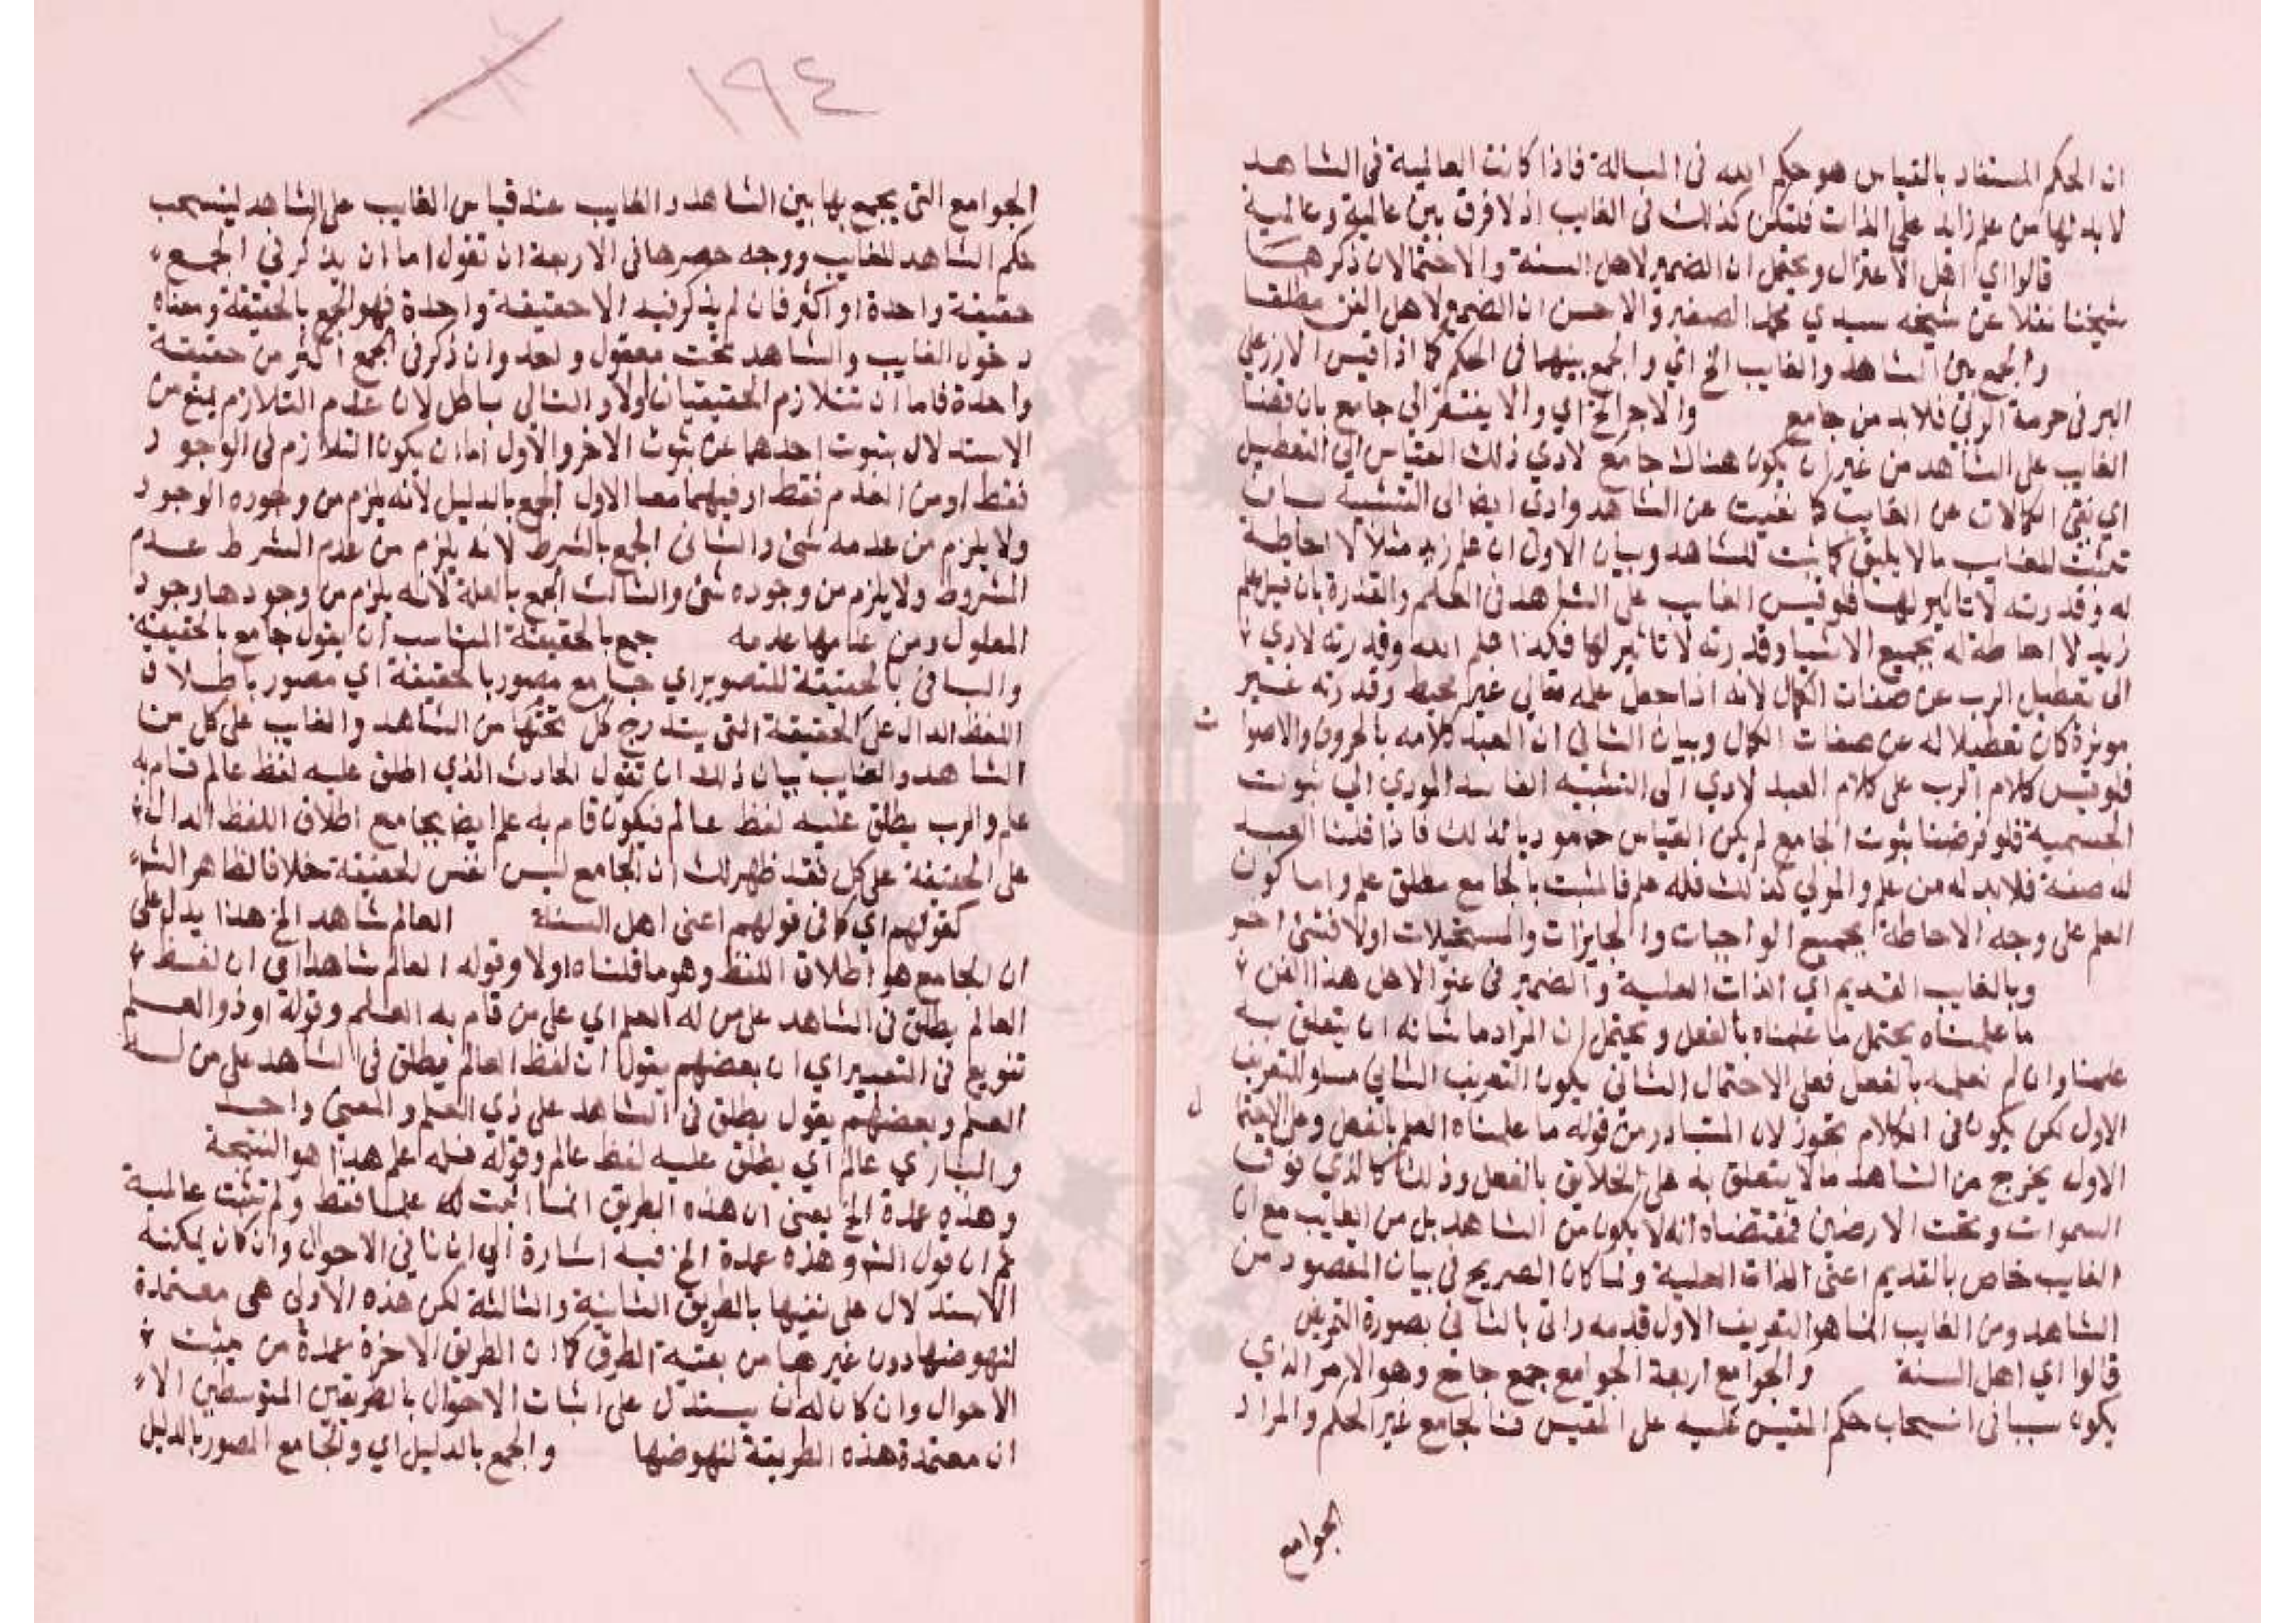 ان الحكم المستفاد بالقياس هو حكم الله في المسالة فاذا كانت العالمية في الشاهد
لا بد لها من علم زايد على الذات فلتكن كذلك في الغايب اذ لا فرق بين عالمية وعالمية
قالوا اي اهل الاعتزال ويحتمل ان الضمير لاهل السنة والاحتمالان ذكرهما
شيخنا نقلا عن شيخه سيدي محمد الصغير والاحسن ان الضمير لاهل الفن مطلقا
والجمع بين الشاهد والغايب الخ اي والجمع بينهما في الحكم كما اذا قيس الارز على
البر في حرمة الربي فلا بد من جامع والا جر الخ اي والا يفتقر الى جامع بان قسنا
الغايب على الشاهد من غير ان يكون هناك جامع لادي ذلك القياس الى التعطيل
اي نفي الكمالات عن الغايب كما نفيت عن الشاهد وادى ايضا الى التشبيه بان
تثبت للغايب ما لا يليق كما ثبت للشاهد وبيان الاول ان علم زيد مثلا لا احاطة
له وقدرته لا تاثير لها فلو قيس الغايب على الشاهد في العلم والقدرة بان قيل علم
زيد لا احاطة له بجميع الاشيا وقدرته لا تاثير لها فكذا علم الله وقدرته لادي
الى تعطيل الرب عن صفات الكمال لانه اذا جعل علمه تعالى غير محيط وقدرته غير
موثرة كان تعطيلا له عن صفات الكمال وبيان الثاني ان العبد كلامه بالحروف والاصوا
ت
فلو قيس كلام الرب على كلام العبد لادي الى التشبيه الفاسد المودي الى ثبوت
الجسمية فلو فرضنا ثبوت الجامع لم يكن القياس موديا لذلك فاذا قلنا العبد
له صفة فلا بد له من علم والمولي كذلك فله علم فالمثبت بالجامع مطلق علم واما كون
العلم على وجه الاحاطة بجميع الواجبات والجايزات والمستحيلات اولا فشئ اخر
وبالغايب القديم اي الذات العلية والضمير في عنوا لاهل هذا الفن
ما علمناه يحتمل ما علمناه بالفعل ويحتمل ان المراد ما شانه ان يتعلق به
علمنا وان لم نعلمه بالفعل فعلى الاحتمال الثاني يكون التعريف الثاني مساو للتعريف
الاول لكن يكون في الكلام تجوز لان المتبادر من قوله ما علمناه العلم بالفعل وعلى الاحتما
ل
الاول يخرج من الشاهد ما لا يتعلق به علم الخلايق بالفعل وذلك كالذي فوق
السموات وتحت الارضين فمقتضاه انه لا يكون من الشاهد بل من الغايب مع ان
الغايب خاص بالقديم اعنى الذات العلية ولما كان الصريح في بيان المقصود من
الشاهد ومن الغايب انما هو التعريف الاول قدمه واتى بالثاني بصورة التمريض
قالوا اي اهل السنة والجوامع اربعة الجوامع جمع جامع وهو الامر الذي
يكون سببا في انسحاب حكم المقيس عليه على المقيس فالجامع غير الحكم والمراد
الجوامع
١٩٤
الجوامع التي يجمع بها بين الشاهد والغايب عند قياس الغايب على الشاهد لينسحب
حكم الشاهد للغايب ووجه حصرها في الاربعة ان تقول اما ان يذكر في الجمع
حقيقة واحدة او اكثر فان لم يذكر فيه الا حقيقة واحدة فهو الجمع بالحقيقة ومعناه
دخول الغايب والشاهد تحت معقول واحد وان ذكر في الجمع اكثر من حقيقة
واحدة فاما ان تتلازم الحقيقتان اولا والتالي باطل لان عدم التلازم يمنع من
الاستدلال بثبوت احدهما عن ثبوت الاخر والاول اما ان يكون التلازم في الوجود
فقط او من العدم فقط او فيهما معا الاول الجمع بالدليل لانه يلزم من وجوده الوجود
ولا يلزم من عدمه شئ والثاني الجمع بالشرط لانه يلزم من عدم الشرط عدم
المشروط ولا يلزم من وجوده شئ والثالث الجمع بالعلة لانه يلزم من وجودها وجود
المعلول ومن عدمها عدمه جمع بالحقيقة المناسب ان يقول جامع بالحقيقة
والبا في بالحقيقة للتصوير اي جامع مصور بالحقيقة اي مصور باطلاق
اللفظ الدال على الحقيقة التي يندرج كل تحتها من الشاهد والغايب على كل من
الشاهد والغايب بيان ذلك ان تقول الحادث الذي اطلق عليه لفظ عالم قام به
علم والرب يطلق عليه لفظ عالم فيكون قام به علم ايضا بجامع اطلاق اللفظ الدال
على الحقيقة على كل فقد ظهر لك ان الجامع ليس نفس الحقيقة خلافا لظاهر الش
كقولهم اي كما في قولهم اعنى اهل السنة العالم شاهد الخ هذا يدل على
ان الجامع هو اطلاق اللفظ وهو ما قلناه اولا وقوله العالم شاهدا اي ان لفظ
العالم يطلق في الشاهد على من له العلم اي على من قام به العلم وقوله او ذو العلم
تنويع في التعبير اي ان بعضهم يقول ان لفظ العالم يطلق في الشاهد على من له
العلم وبعضهم يقول يطلق في الشاهد على ذي العلم والمعنى واحد
والباري عالم اي يطلق عليه لفظ عالم وقوله فله علم هذا هو النتيجة
وهذه عمدة الخ يعني ان هذه الطريق انما اثبتت له علما فقط ولم تثبت عالمية
ثم ان قول الش وهذه عمدة الخ فيه اشارة الى ان نافي الاحوال وان كان يمكنه
الاستدلال على نفيها بالطريق الثانية والثالثة لكن هذه الاولى هي معتمدة
لنهوضها دون غيرها من بقية الطرق كما ان الطريق الاخرة عمدة من مثبت
الاحوال وان كان له ان يستدل على اثبات الاحوال بالطريقين المتوسطين الا
ان معتمدة هذه الطريقة لنهوضها والجمع بالدليل اي والجامع المصور بالدليل